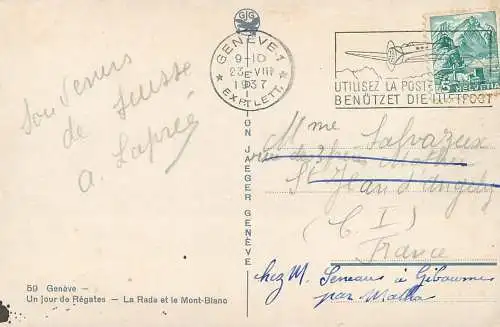 GENÈVE·1
9-10
23·VIII
1937
★ EXP. LETT. ★
UTILISEZ LA POSTE
BENÜTZET DIE LUFTPOST
5 HELVETIA
Souvenirs
de Suisse
A. Lapreé
ION JAEGER GENÈVE
Mme Salvazeux
rue de
St Jean d'Angély
(C I)
France
chez M. Seneaus à Gibourne
par Matha
59 Genève —
Un jour de Régates — La Rade et le Mont-Blanc